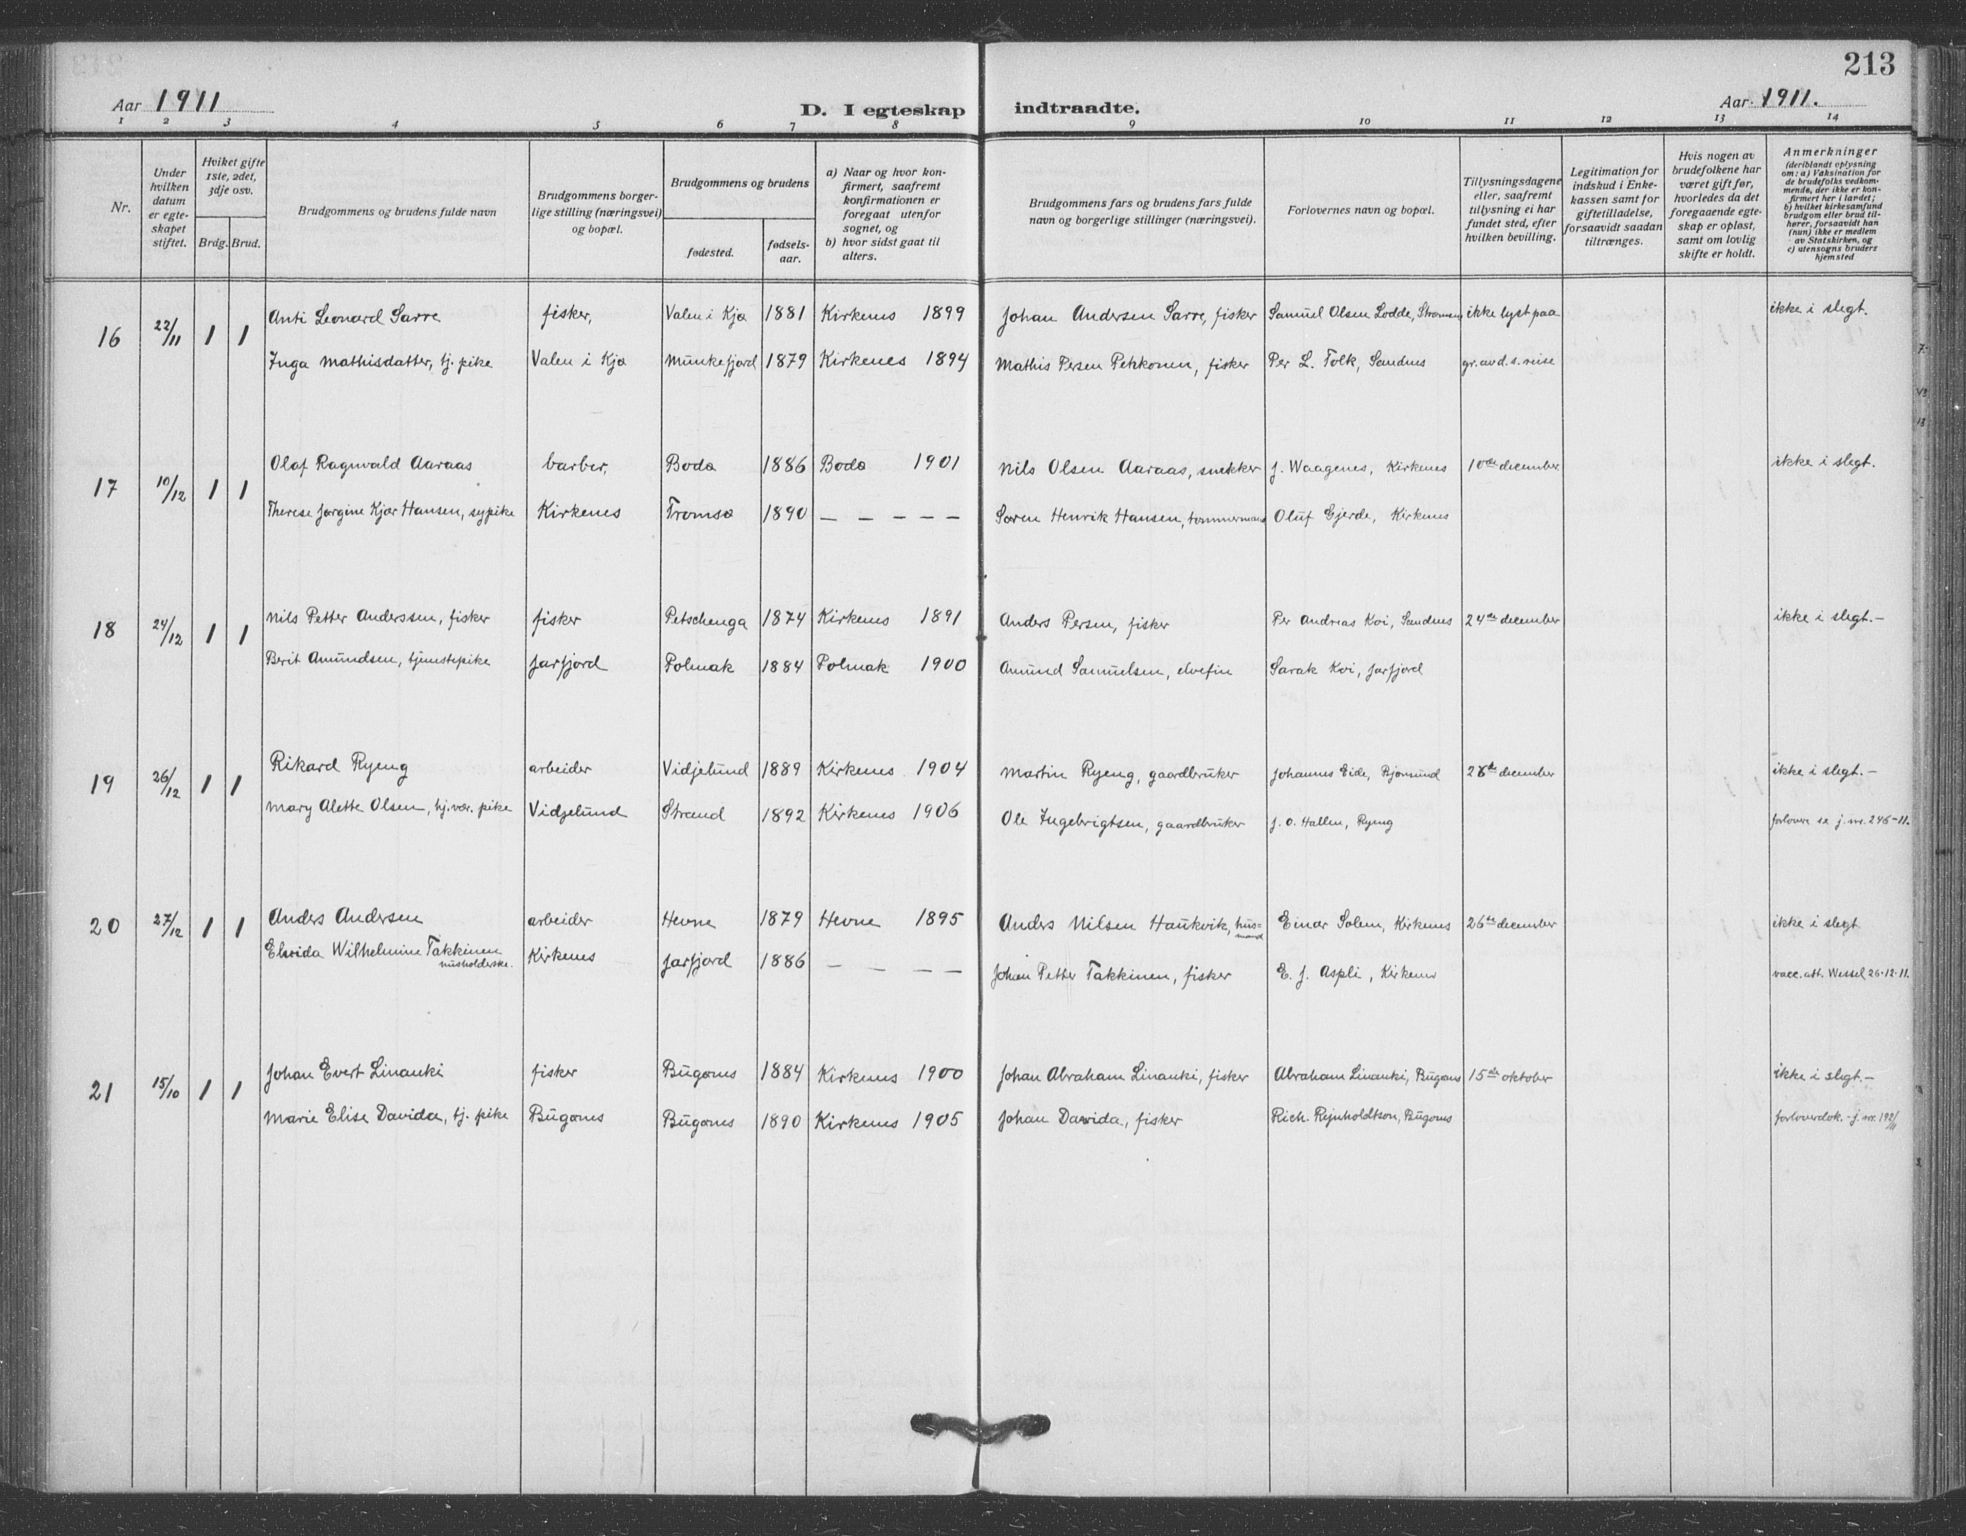 213
Aar 1911
D. I egteskap indtraadte.
Aar 1911.
1 2 3 4 5 6 7 8 9 10 11 12 13 14
Nr.
Under hvilken datum er egteskapet stiftet.
Hviket gifte 1ste, 2det, 3dje osv.
Brdg. Brud.
Brudgommens og brudens fulde navn
Brudgommens borgerlige stilling (næringsvei) og bopæl.
Brudgommens og brudens
fødested.
fødselsaar.
a) Naar og hvor konfirmert, saafremt konfirmationen er foregaat utenfor sognet, og
b) hvor sidst gaat til alters.
Brudgommens fars og brudens fars fulde navn og borgerlige stillinger (næringsvei).
Forlovernes navn og bopæl.
Tillysningsdagene eller, saafremt tillysning ei har fundet sted, efter hvilken bevilling.
Legitimation for indskud i Enkekassen samt for giftetilladelse, forsaavidt saadan tiltrænges.
Hvis nogen av brudefolkene har været gift før, hvorledes da det foregaaende egteskap er opløst, samt om lovlig skifte er holdt.
Anmerkninger
(deriblandt oplysning om: a) Vaksination for de brudefolks vedkommende, der ikke er konfirmert her i landet; b) hvilket kirkesamfund brudgom eller brud tilhører, forsaavidt han (hun) ikke er medlem av Statskirken, og c) utensogns bruders hjemsted
16 22/11 1 1 Anti Leonard Sarre fisker, Valen i Kjø 1881 Kirkenes 1899 Johan Andersen Sarre, fisker Samuel Olsen Lodde, ikke lyst paa ikke i slegt.
Inga Mathisdatter, tj. pike Valen i Kjø Munkefjord 1879 Kirkenes 1894 Mathis Persen Pekkonen, fisker Per L. Folk, Sandnes gr. av d. s. reise
17 10/12 1 1 Olaf Ragnvald Aaraas barber, Bodø 1886 Bodø 1901 Nils Olsen Aaraas, snekker J. Waagenes, Kirkenes 10de december ikke i slegt.
Therese Jørgine Kjær Hansen, sypike Kirkenes Tromsø 1890 — — — — — Søren Henrik Hansen, tømmermand Oluf Gjerde, Kirkenes
18 24/12 1 1 Nils Petter Anderssen, fisker fisker Petschenga 1874 Kirkenes 1891 Anders Persen, fisker Per Andreas Koi, Sandnes 24de december ikke i slegt.—
Berit Amundsen, tjenestepike Jarfjord Polmak 1884 Polmak 1900 Amund Samuelsen, elvefin Sarak Koi, Jarfjord
19 26/12 1 1 Rikard Ryeng arbeider Vidjelund 1889 Kirkenes 1904 Martin Ryeng, gaardbruker Johannes Eide, Bjørnsund december ikke i slegt.—
Mary Alette Olsen, hj.vær. pike Vidjelund Strand 1892 Kirkenes 1906 Ole Ingebrigtsen, gaardbruker J. O. Hallen, Ryeng forlovere se j. nr. 246-11.
20 27/12 1 1 Anders Andersen arbeider Hevne 1879 Hevne 1895 Anders Nilsen Haukvik, husmand Einar Solem, Kirkenes 26de december ikke i slegt
Elvida Wilhelmine Takkinen husholderske. Kirkenes Jarfjord 1886 — — — — Johan Petter Takkinen, fisker E. J. Aspli, Kirkenes vacc. att. Wessel 26-12-11.
21 15/10 1 1 Johan Evert Linanki fisker Bugønes 1884 Kirkenes 1900 Johan Abraham Linanki, fisker Abraham Linanki, Bugønes 15de oktober ikke i slegt.—
Marie Elise Davida, tj. pike Bugønes Bugønes 1890 Kirkenes 1905 Johan Davida, fisker Rich. Reinholdtsen, Bugønes forloverdok.- j. nr. 192/11